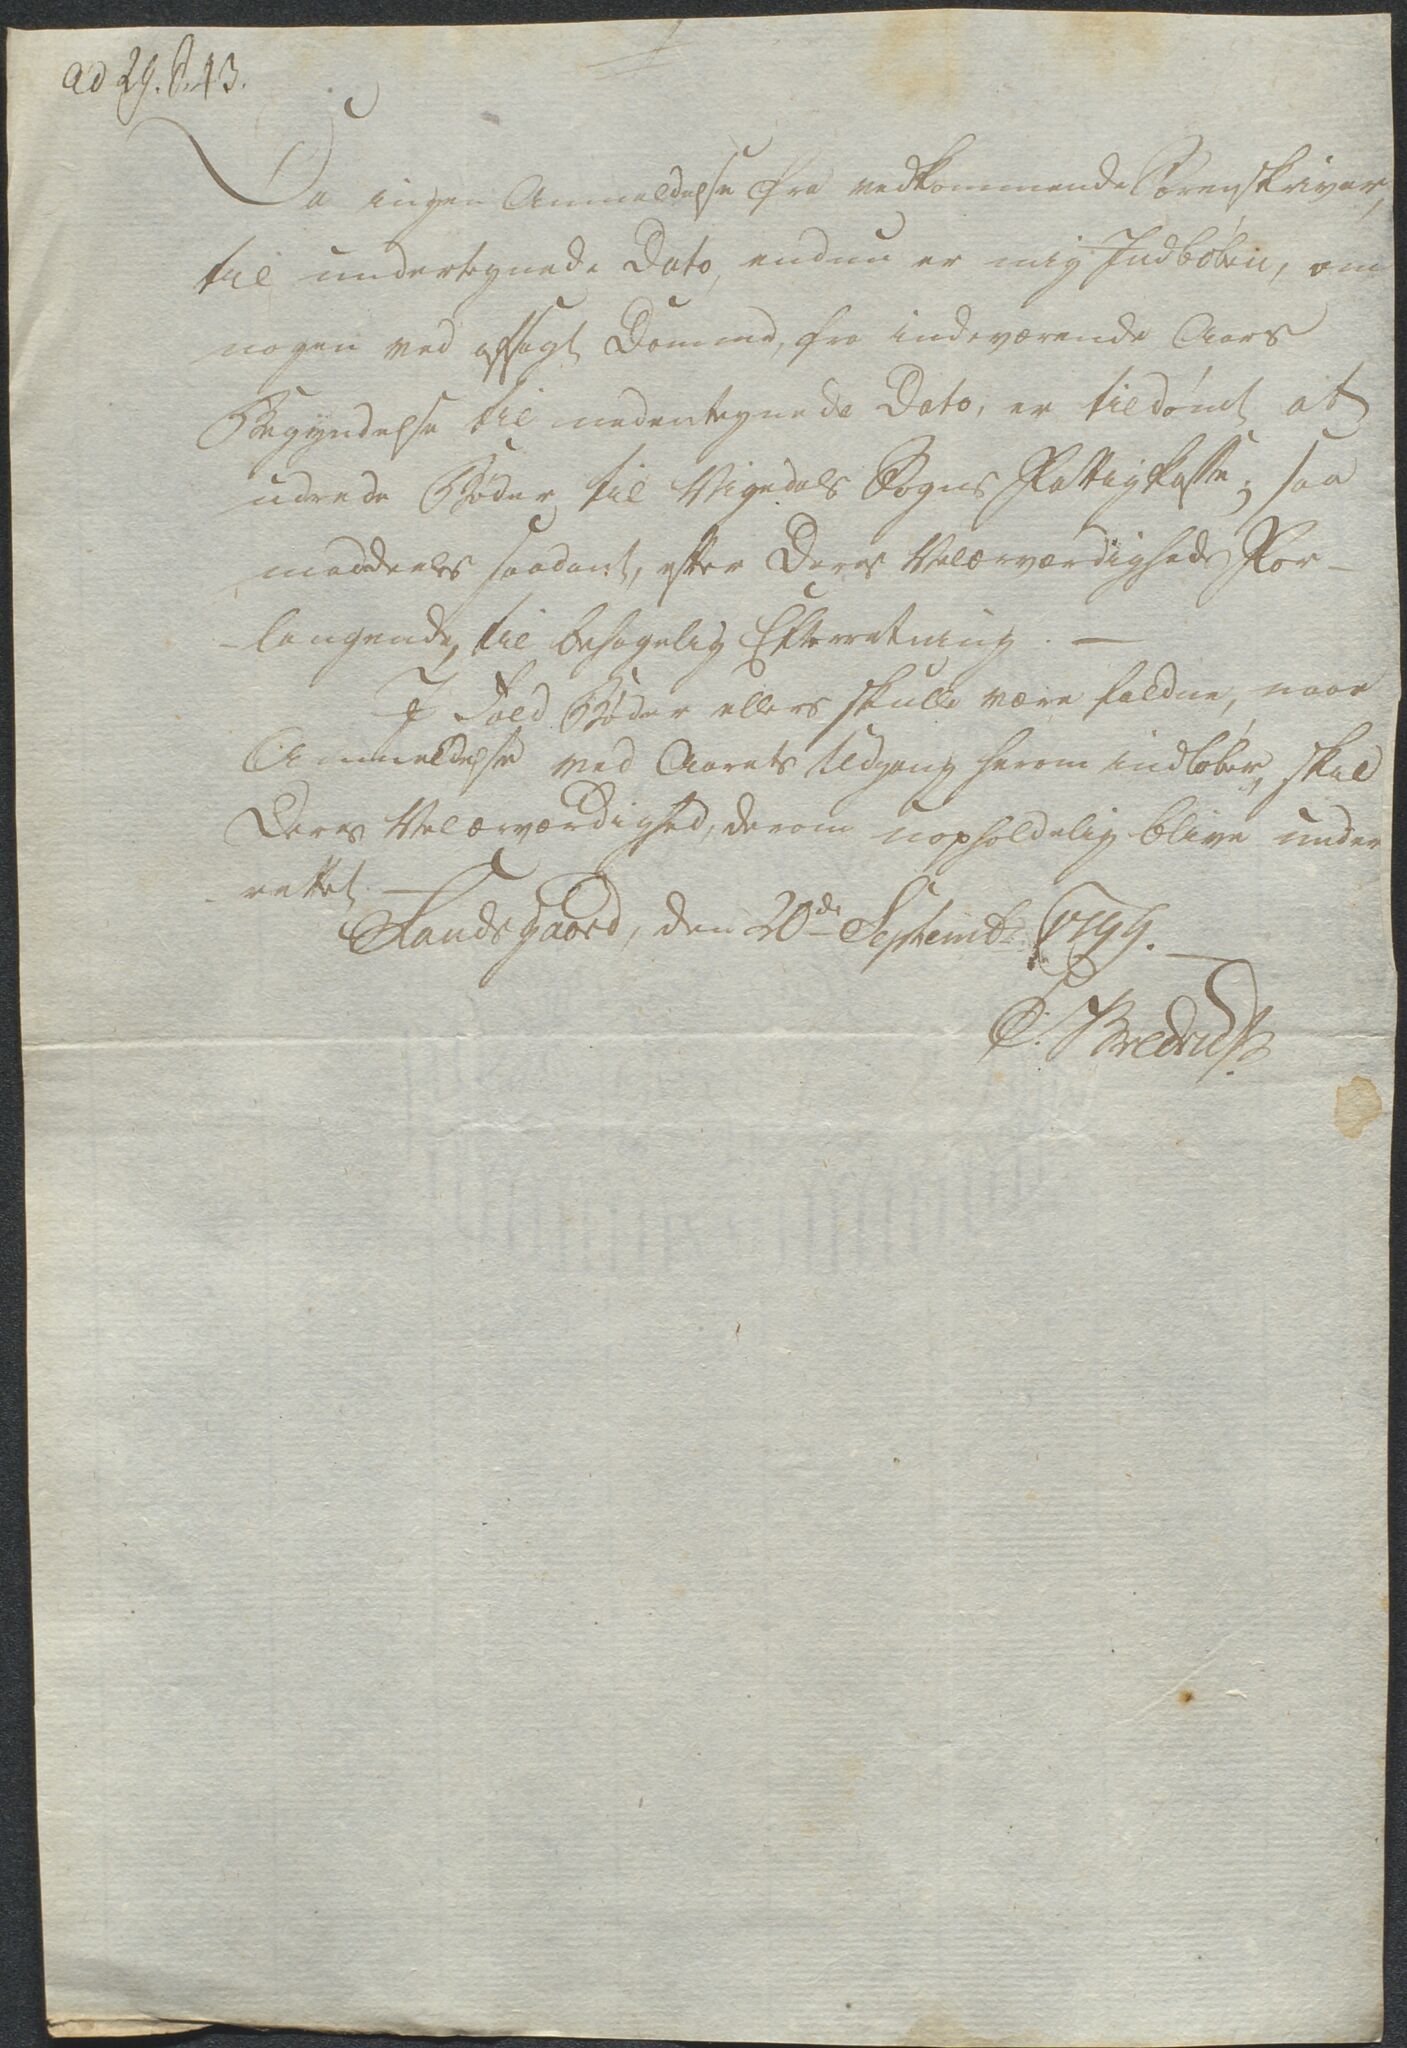 ad 29. P. 13.
Da ingen Anmeldelse fra vedkommende Sorenskriver,
til undertegnede Dato, endnu er mig Indløben, om
nogen ved afsagt Domme, fra indeværende Aars
Begyndelse til nedentegnede Dato, er tildømt at
udrede Bøder til Vigedals Sogns Fattigkasse; saa
meddeeles saadant, efter Deres Velærværdigheds For-
-langende, til behagelig Efterretning. —
I Fald Bøder ellers skulle være faldne, naar
Anmeldelse ved Aarets Udgang herom indløber, skal
Deres Velærværdighed, derom uopholdelig blive under
rettet. —
Sandsgaard, den 20de Septembr 1799. —